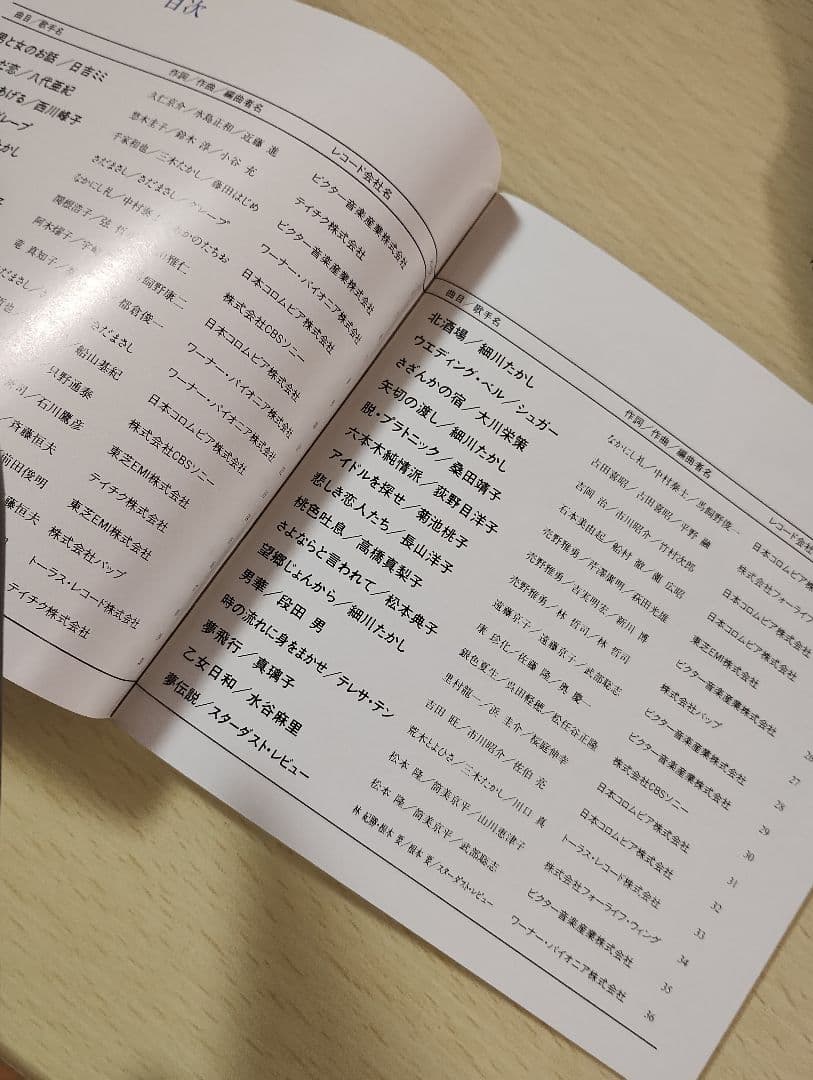 目次
曲目/歌手名 作詞/作曲/編曲者名 レコード会社名
男と女のお話/日吉ミミ 久仁京介/水島正和/近藤 進 ビクター音楽産業株式会社
だ恋/八代亜紀 悠木圭子/鈴木 淳/小谷 充 テイチク株式会社
あげる/西川峰子 千家和也/三木たかし/藤田はじめ ビクター音楽産業株式会社
グレープ さだまさし/さだまさし/グレープ ワーナー・パイオニア株式会社
たかし なかにし礼/中村泰 あかのたちお 日本コロムビア株式会社
関根浩子/弦 川雅仁 株式会社CBSソニー
阿木燿子/宇 飼野康二 日本コロムビア株式会社
竜 真知子/ 都倉俊一 ワーナー・パイオニア株式会社
だまさし/ さだまさし ワーナー・パイオニア株式会社
/船山基紀 日本コロムビア株式会社
只野通泰 株式会社CBSソニー
/石川鷹彦 東芝EMI株式会社
/斉藤恒夫 テイチク株式会社
前田俊明 東芝EMI株式会社
藤恒夫 株式会社バップ
トーラス・レコード株式会社
テイチク株式会社
曲目/歌手名 作詞/作曲/編曲者名 レコード会社
北酒場/細川たかし なかにし礼/中村泰士/馬飼野俊一 日本コロムビア株
ウエディング・ベル/シュガー 古田喜昭/古田喜昭/平野 融 株式会社フォーライフ
さざんかの宿/大川栄策 吉岡 治/市川昭介/竹村次郎 日本コロムビア株式会社
矢切の渡し/細川たかし 石本美由起/船村 徹/蔦 広昭 日本コロムビア株式会社
脱・プラトニック/桑田靖子 売野雅勇/芹澤廣明/萩田光雄 東芝EMI株式会社
六本木純情派/荻野目洋子 売野雅勇/吉実明宏/新川 博 ビクター音楽産業株式会社 26
アイドルを探せ/菊池桃子 売野雅勇/林 哲司/林 哲司 株式会社バップ 27
悲しき恋人たち/長山洋子 遠藤京子/遠藤京子/武部聡志 ビクター音楽産業株式会社 28
桃色吐息/高橋真梨子 康 珍化/佐藤 隆/奥 慶一 ビクター音楽産業株式会社 29
さよならと言われて/松本典子 銀色夏生/呉田軽穂/松任谷正隆 株式会社CBSソニー 30
望郷じょんから/細川たかし 里村龍一/浜 圭介/桜庭伸幸 日本コロムビア株式会社 31
男輩/段田 男 吉田 旺/市川昭介/佐伯 亮 日本コロムビア株式会社 32
時の流れに身をまかせ/テレサ・テン 荒木とよひさ/三木たかし/川口 真 トーラス・レコード株式会社 33
夢飛行/真璃子 松本 隆/筒美京平/山川恵津子 株式会社フォーライフ・ウィング 34
乙女日和/水谷麻里 松本 隆/筒美京平/武部聡志 ビクター音楽産業株式会社 35
夢伝説/スターダスト・レビュー 林 紀勝・根本 要/根本 要/スターダスト・レビュー ワーナー・パイオニア株式会社 36